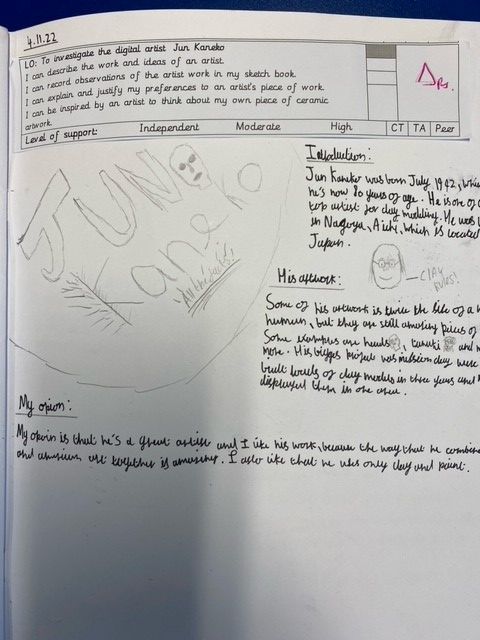 4.11.22
LO: To investigate the digital artist Jun Kaneko
I can describe the work and ideas of an artist.
I can record observations of the artist work in my sketch book.
I can explain and justify my preferences to an artist's piece of work.
I can be inspired by an artist to think about my own piece of ceramic
artwork.
Level of support: Independent Moderate High CT TA Peer
JUN
Kaneko
All the facts!
Introduction:
Jun Kaneko was born July 1942, whi
he's now 80 years of age. He is one of
top artist for clay modling. He was b
in Nagoya, Aichi, which is located
Japan.
CLAY
RULES!
His artwork:
Some of his artwork is twice the life of a
human, but they are still amazing pieces of
Some examples are heads, tanuki and
more. His bigges project was mission clay were
built loads of clay models in three years and
displayed them in one area.
My opion:
My opion is that he's a great artist and I like his work, because the way that he combine
and art together is amazing. I also like that he uses only clay and paint.